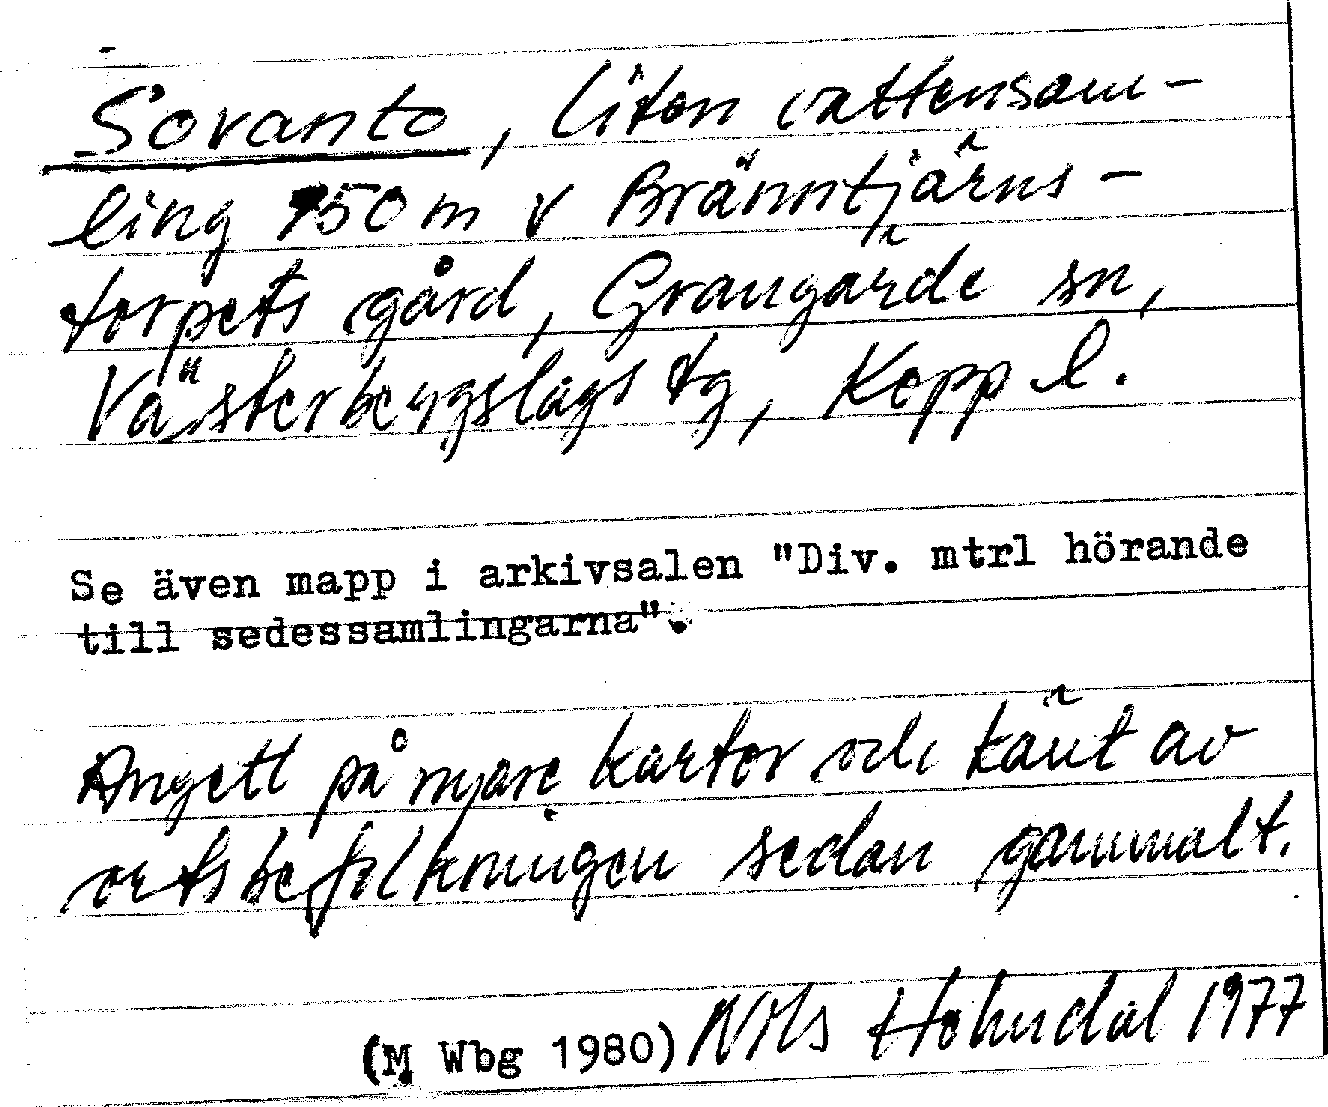 Sovanto, liten vattensam-
ling 750 m v Bränntjärns-
torpets gård, Grangärde sn,
Västerbergslags tg, Kopp l.
Se även mapp i arkivsalen "Div. mtrl hörande
till sedessamlingarna".
Angett på nyare kartor och känt av
ortsbefolkningen sedan gammalt.
(M Wbg 1980) Nils Holmdal 1977